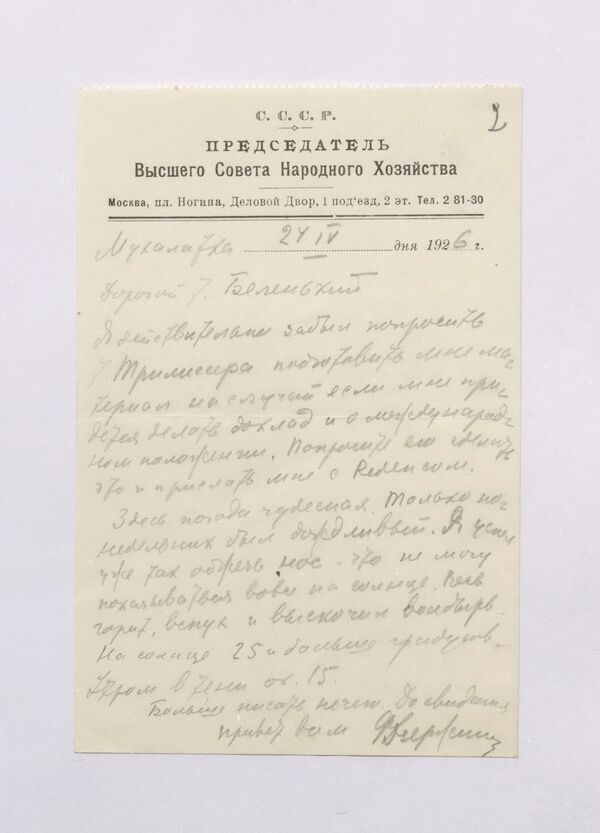 2
С. С. С. Р.
ПРЕДСЕДАТЕЛЬ
Высшего Совета Народного Хозяйства
Москва, пл. Ногина, Деловой Двор, 1 под'езд, 2 эт. Тел. 2 81-30
Мухалатка 24 IV дня 1926 г.
Дорогой т. Беленький
Я действительно забыл попросить
т. Трилиссера подготовить мне ма-
териал на случай если мне при-
дется делать доклад и о международ-
ном положении. Попросите его сделать
это и прислать мне с Redensом.
Здесь погода чудесная. Только по-
недельник был дождливый. Я успел
уже так обжечь нос - что не могу
показываться вовсе на солнце. Весь
горит, вспух и выскочил волдырь.
На солнце 25 и больше градусов.
Утром в тени ок. 15.
Больше писать нечего. До свидания
привет вам ФДзержинск